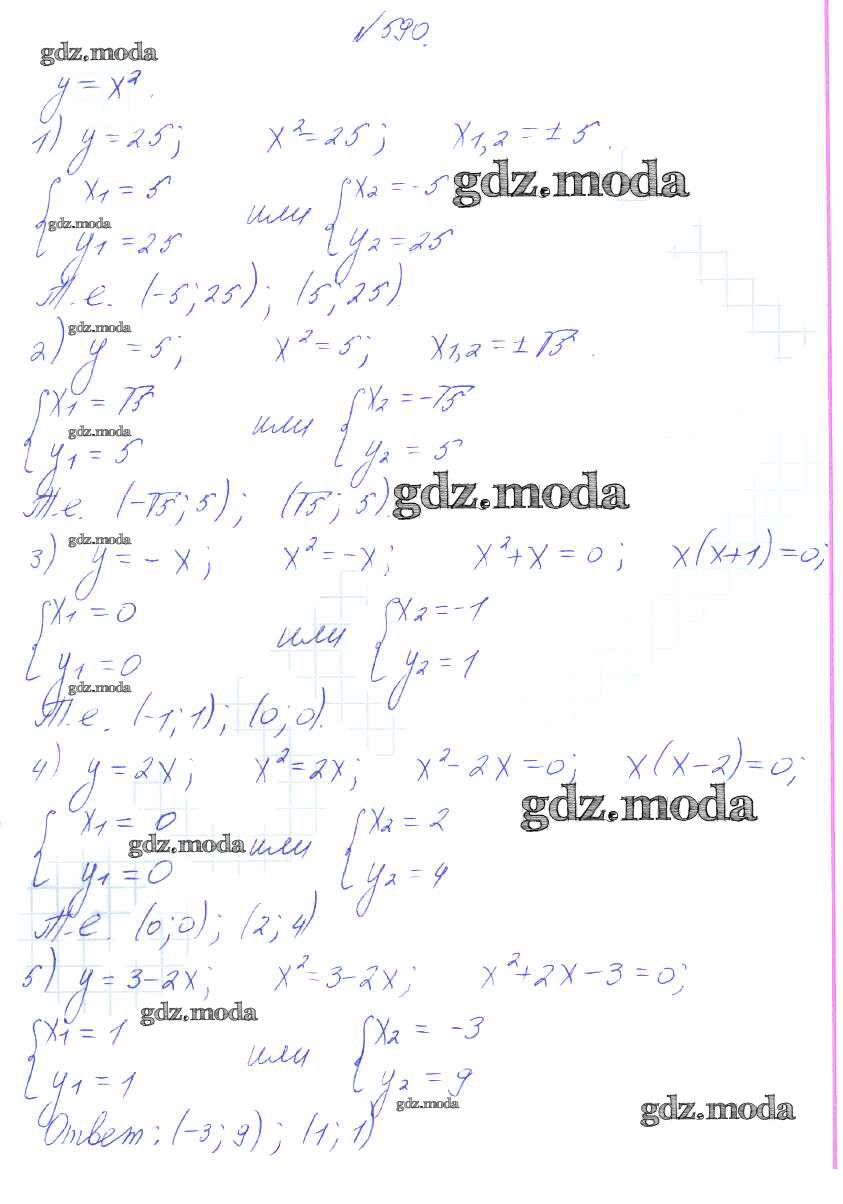 №590.
gdz.moda
y = x².
1) y = 25; x² = 25; x₁,₂ = ± 5.
{ x₁ = 5 или { x₂ = -5 gdz.moda
gdz.moda
y₁ = 25 y₂ = 25
Т.е. (-5; 25); (5; 25)
gdz.moda
2) y = 5; x² = 5; x₁,₂ = ± √5.
{ x₁ = √5 или { x₂ = -√5
gdz.moda
y₁ = 5 y₂ = 5
Т.е. (-√5; 5); (√5; 5). gdz.moda
gdz.moda
3) y = - x; x² = -x; x² + x = 0; x(x+1) = 0;
{ x₁ = 0 или { x₂ = -1
y₁ = 0 y₂ = 1
gdz.moda
Т.е. (-1; 1); (0; 0).
4) y = 2x; x² = 2x; x² - 2x = 0; x(x-2) = 0;
gdz.moda
{ x₁ = 0 или { x₂ = 2
gdz.moda
y₁ = 0 y₂ = 4
Т.е. (0; 0); (2; 4)
5) y = 3-2x; x² = 3-2x; x² + 2x - 3 = 0;
gdz.moda
{ x₁ = 1 или { x₂ = -3
y₁ = 1 y₂ = 9
gdz.moda
gdz.moda
Ответ: (-3; 9); (1; 1)